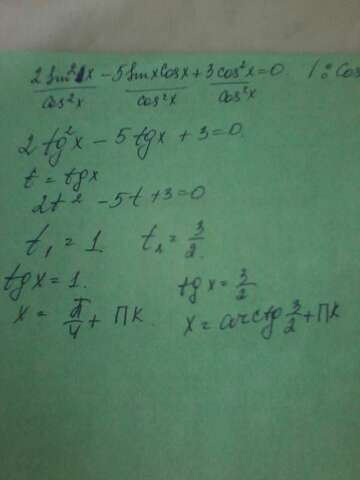 2sin²x/cos²x - 5sinxcosx/cos²x + 3cos²x/cos²x = 0. /: cos
2tg²x - 5tgx + 3 = 0.
t = tgx
2t² - 5t + 3 = 0
t₁ = 1 t₂ = 3/2
tgx = 1. tgx = 3/2
x = π/4 + πк. x = arctg 3/2 + πк